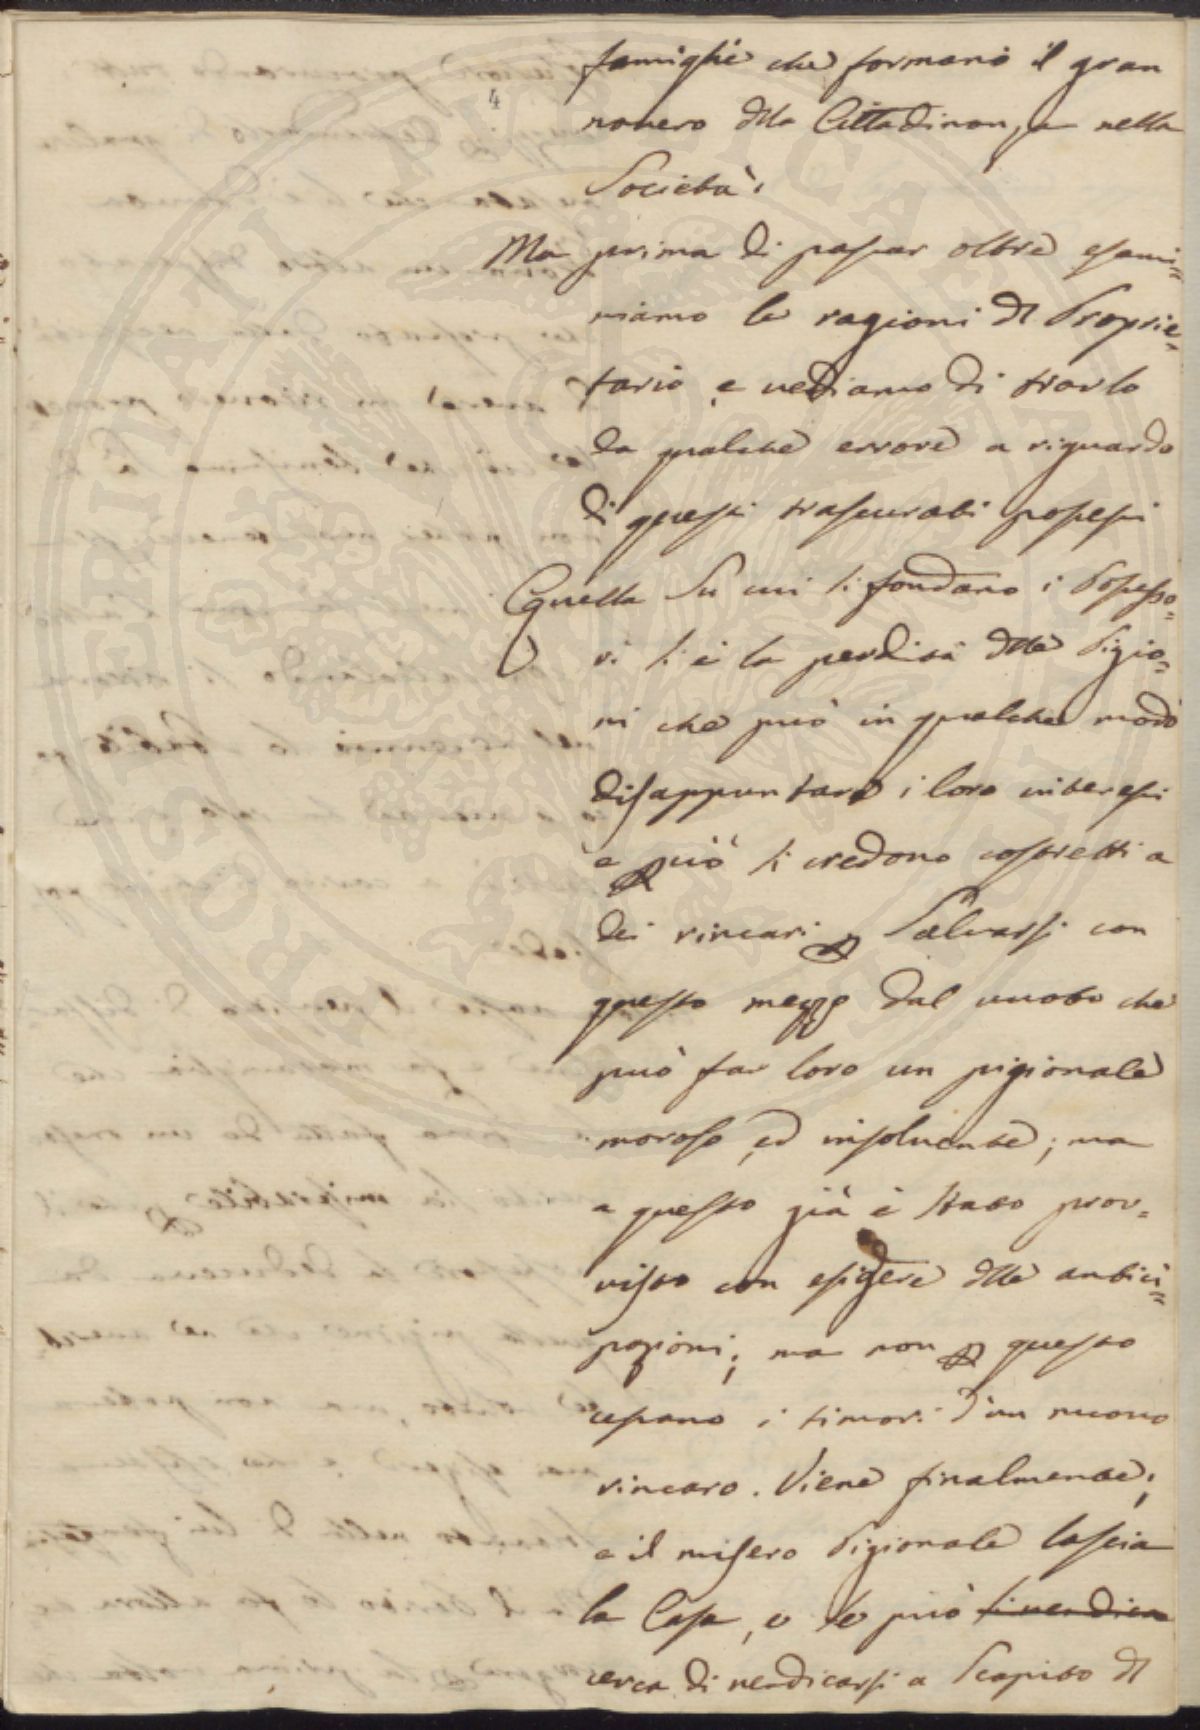 4
famiglie che formano il gran
novero dlla Cittadinanza nella
Società.
Ma prima di passar oltre esami=
niamo le ragioni dl Proprie=
tario, e vediamo di trarlo
da qualche errore a riguardo
di questi trascurati possessi
Quella su cui si fondano i Possesso=
ri si è la perdita dlle Pigio=
ni che può in qualche modo
disappuntare i loro interessi
e p ciò si credono costretti a
dei rincari p Salvarsi con
questo mezzo dal vuoto che
può far loro un pigionale
moroso, ed insolvente; ma
a questo già è stato prov=
visto con esigere dlle antici=
pazioni; ma non p questo
cessano i timori d'un nuovo
rincaro. Viene finalmente;
e il misero Pigionale lascia
la Casa, e se può si vendica
cerca di vendicarsi a Scapito dl
PROSPERITATI PUBLICAE AUGENDAE